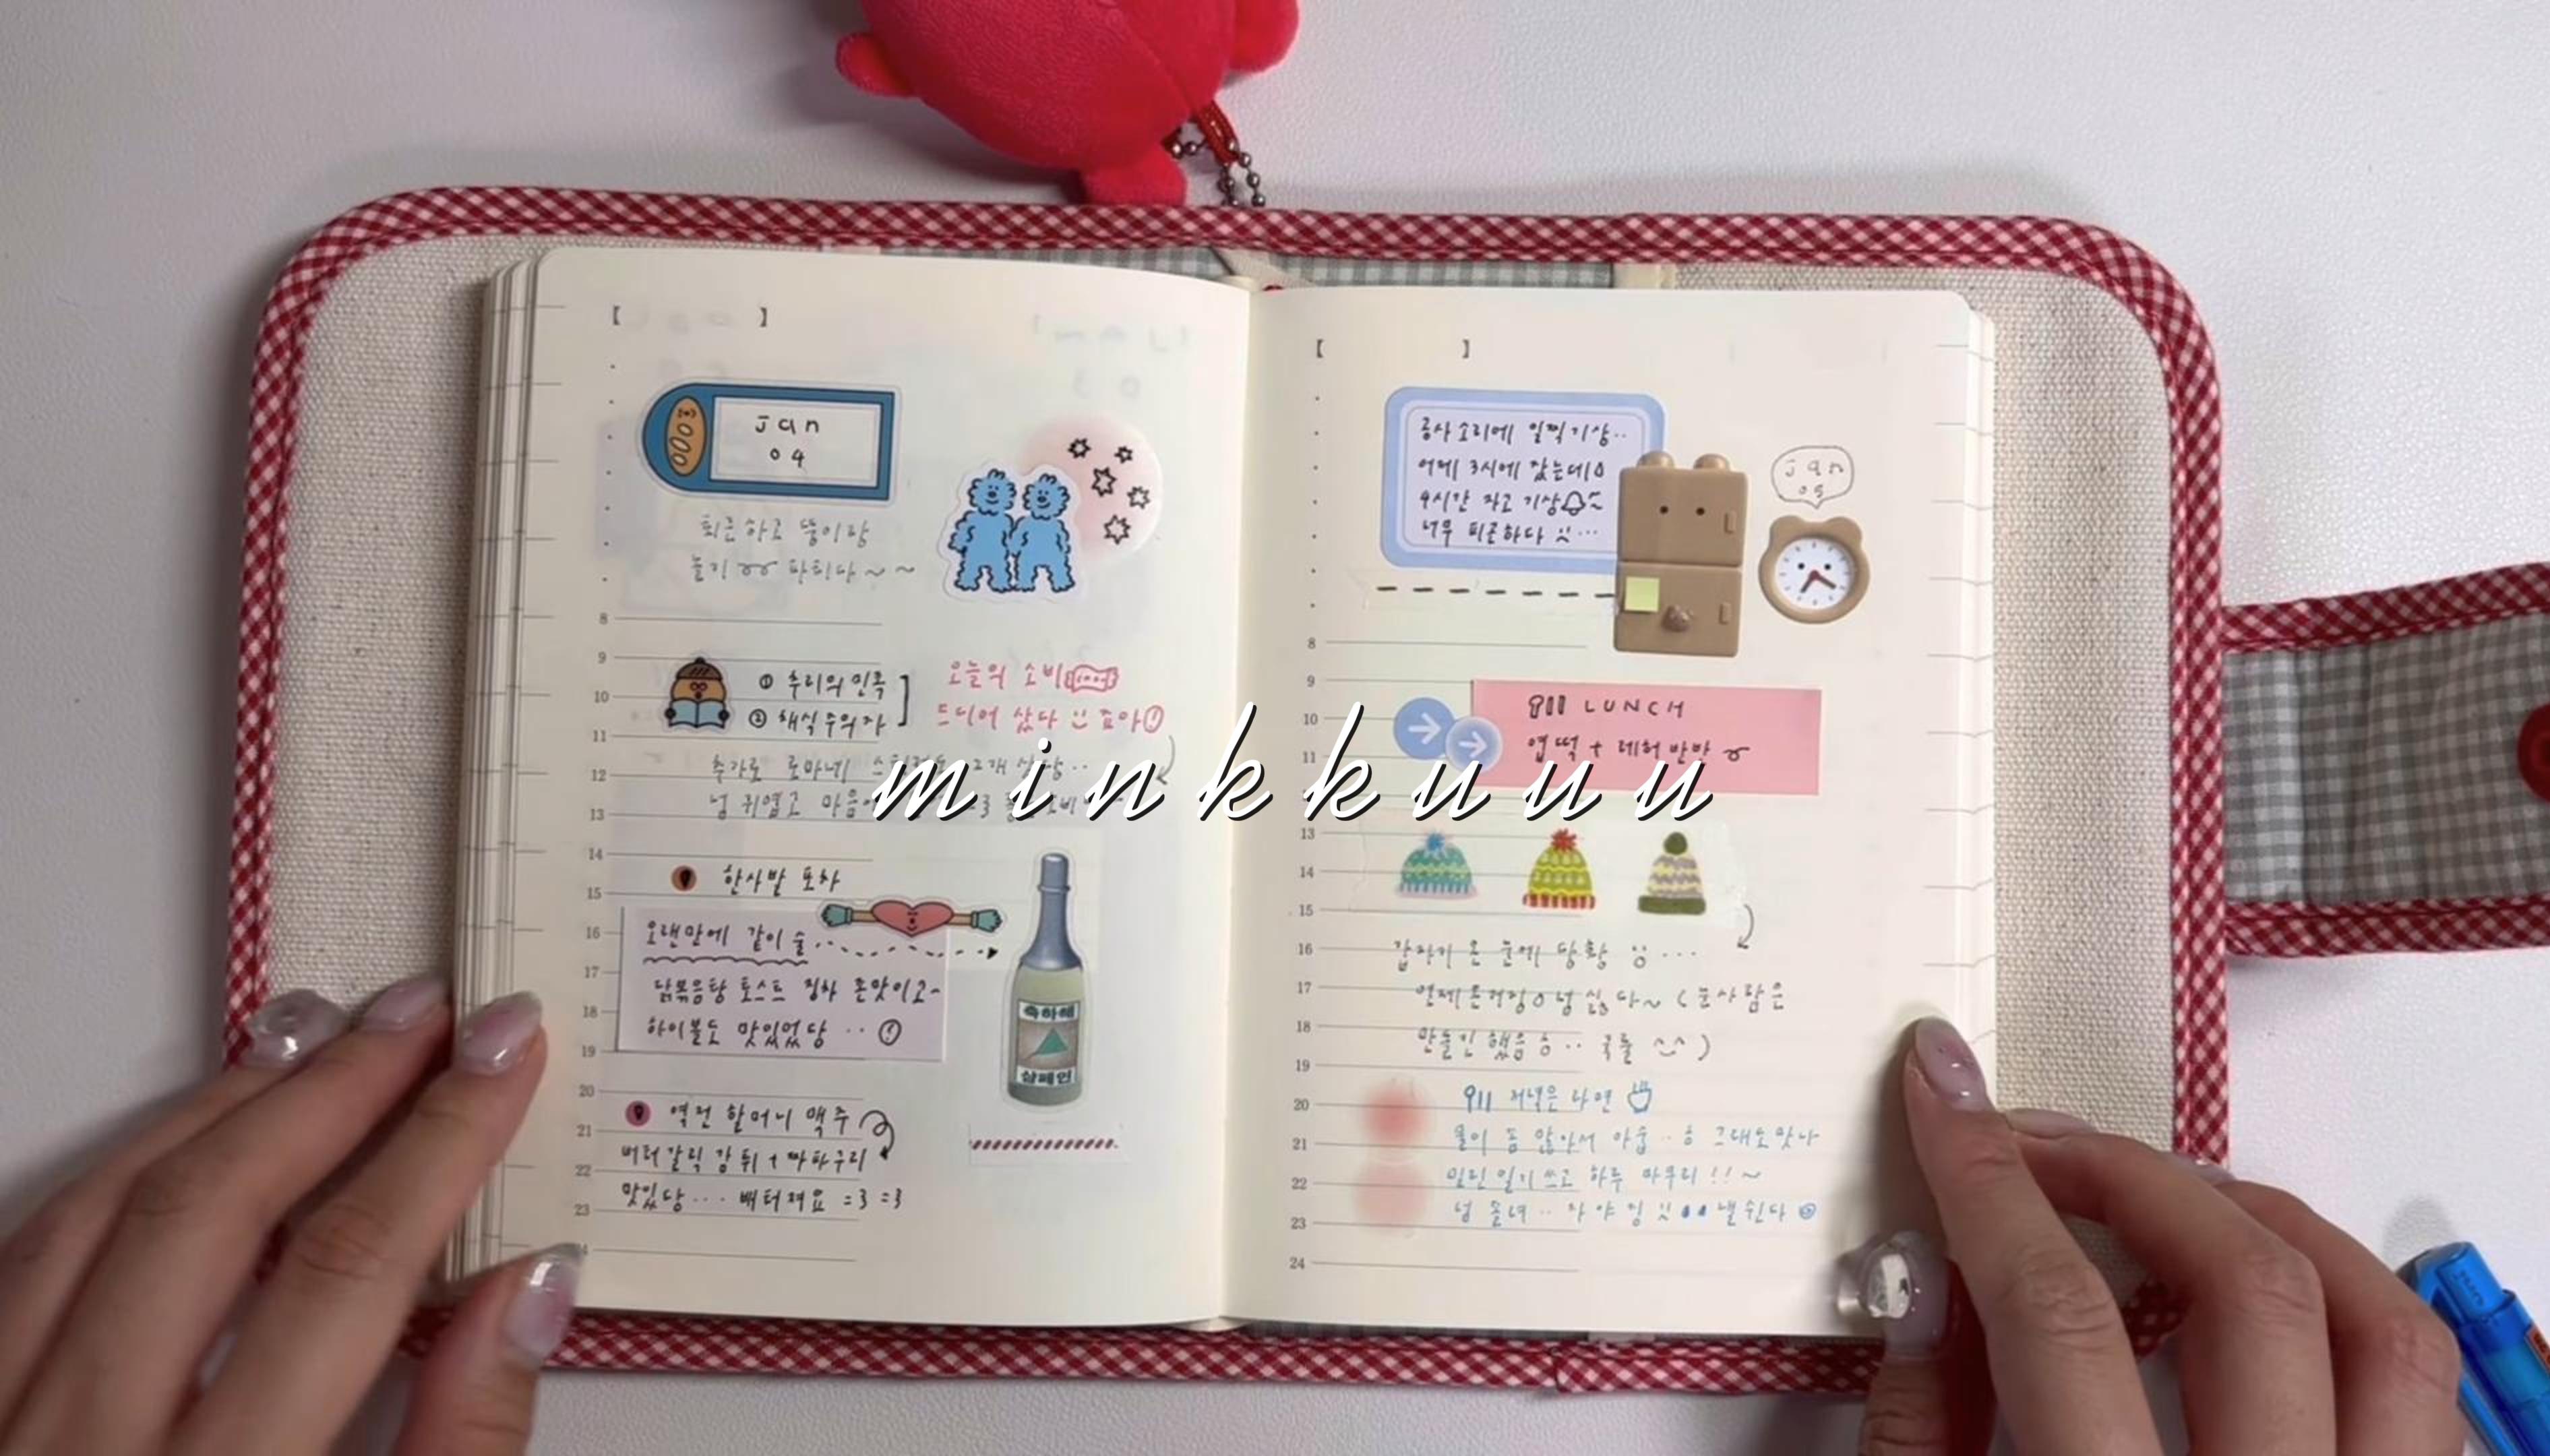 【 】
Jan
04
퇴근하고 뚱이랑
놀기 파티다~~
8
9
10
11
12
13
14
15
16
17
18
19
20
21
22
23
① 추리의 민족
② 채식주의자
오늘의 소비
드디어 샀다 좋아!
추가로 로마네 스티커도 2개 샀당..
넘 귀엽고 마음에
한사발 포차
오랜만에 같이 술
닭볶음탕 토스트 진짜 존맛이고~
하이볼도 맛있었당 ..!
축하해
샴페인
역전 할머니 맥주
버터갈릭 감튀 + 짜파구리
맛있당... 배터져요 =3 =3
minkkuuu
【 】
공사소리에 일찍기상..
어제 3시에 잤는데
4시간 자고 기상
너무 피곤하다 ...
Jan
05
8
9
10
11
13
14
15
16
17
18
19
20
21
22
23
24
LUNCH
엽떡 + 레허반반
갑자기 온 눈에 당황 ...
언제 온거징 넘 싫다~ (눈사람은
만들긴 했음ㅎ.. 국룰 ^^)
저녁은 라면
물이 좀 많아서 아쉽..ㅎ 그래도 맛나
밀린일기 쓰고 하루 마무리!!~
넘 졸려.. 자야징 낼 쉰다